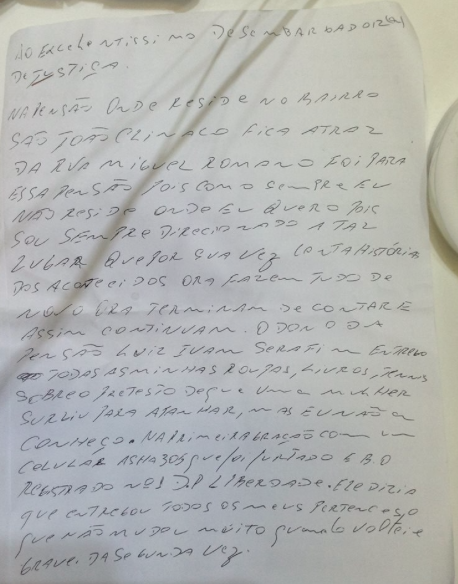 AO EXCELENTISSIMO DESEMBARGADOR(A)
DE JUSTIÇA.
NA PENSÃO ONDE RESIDE NO BAIRRO
SÃO JOÃO CLIMACO FICA ATRAZ
DA RUA MIGUEL ROMANO FOI PARA
ESSA PENSÃO POIS COMO SEMPRE EU
NÃO RESIDO ONDE EU QUERO POIS
SOU SEMPRE DIRECIONADO A TAL
LUGAR QUE POR SUA VEZ CONTA HISTÓRIA
DOS ACONTECIDOS ORA FAZEM TUDO DE
NOVO ORA TERMINAM DE CONTAR E
ASSIM CONTINUAM. O DONO DA
PENSÃO LUIZ IVAM SERAFIM ENTREGO
TODAS AS MINHAS ROUPAS, LIVROS, TENIS
SOBRE O PRETESTO DE QUE UMA MULHER
SURGIU PARA APANHAR, MAS EU NÃO A
CONHEÇO. NA PRIMEIRA GRAÇÃO COM UM
CELULAR que foi furtado E B.O
REGISTRADO NO 1 D.P LIBERDADE. ELE DIZIA
que ENTREGOU TODOS OS MEUS PERTENCES O
QUE NÃO MUDOU MUITO quando VOLTEI E
GRAVEI DA SEGUNDA VEZ.